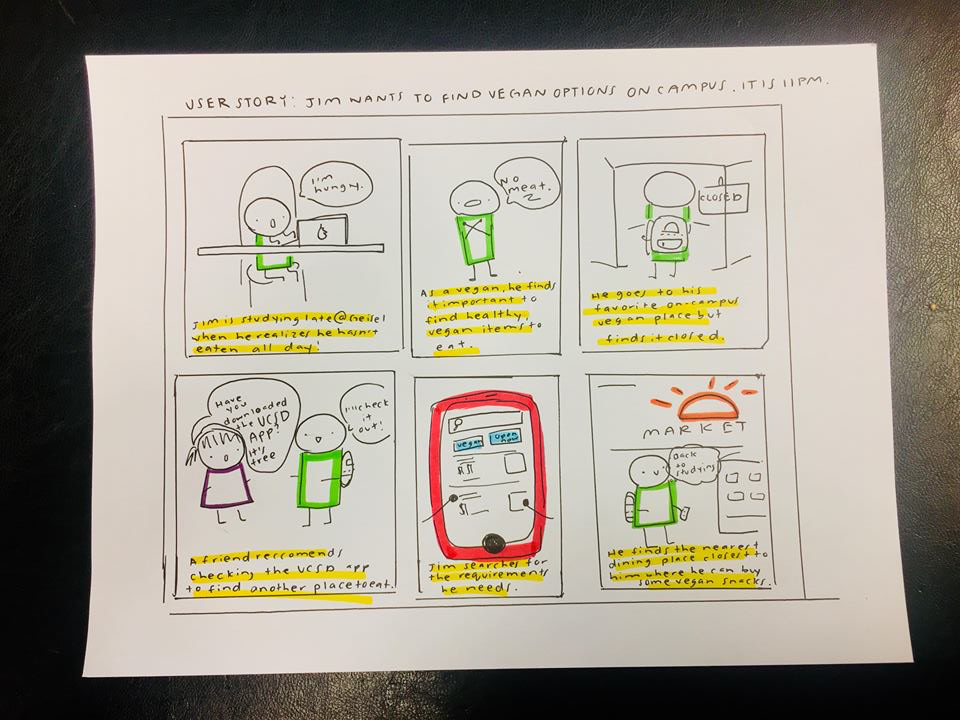 USER STORY: JIM WANTS TO FIND VEGAN OPTIONS ON CAMPUS. IT IS 11PM.
I'm
hungry.
Jim is studying late @ Geisel
when he realizes he hasn't
eaten all day!
No
meat.
As a vegan, he finds
it important to
find healthy,
vegan items to
eat.
CLOSED
He goes to his
favorite on-campus
vegan place but
finds it closed.
Have
you
downloaded
the UCSD
APP?
It's
free
I'll check
it
out!
A friend reccomends
checking the UCSD app
to find another place to eat.
vegan
open
now
$$
$$
Jim searches for
the requirements
he needs.
MARKET
Back
to
studying
He finds the nearest
dining place closest to
him where he can buy
some vegan snacks.